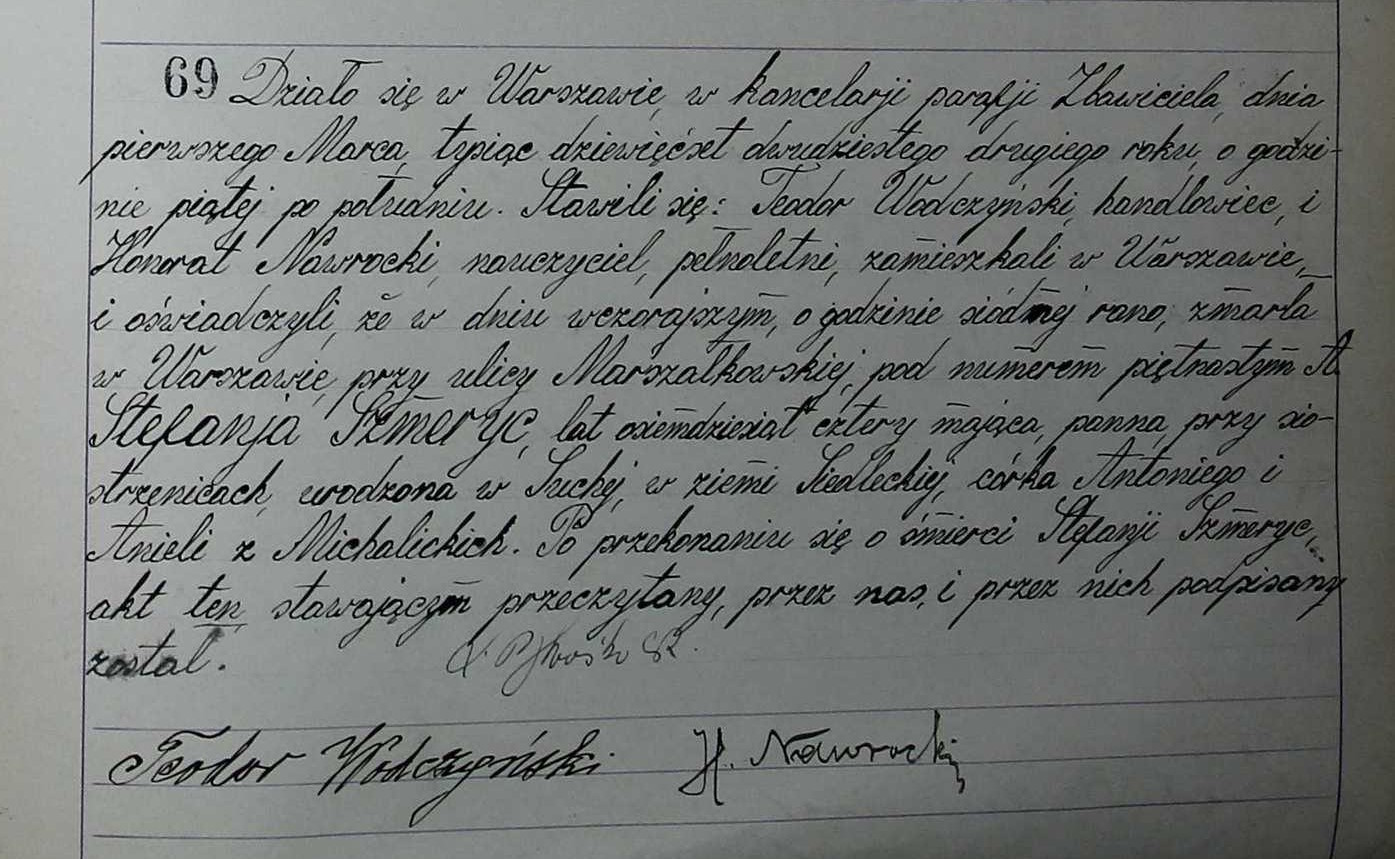 69 Działo się w Warszawie, w kancelarji parafji Zbawiciela, dnia
pierwszego Marca, tysiąc dziewięćset dwudziestego drugiego roku, o godzi-
nie piątej po południu. Stawili się: Teodor Wodczyński, handlowiec, i
Honorat Nawrocki, nauczyciel, pełnoletni, zamieszkali w Warszawie,
i oświadczyli, że w dniu wczorajszym, o godzinie siódmej rano, zmarła
w Warszawie, przy ulicy Marszałkowskiej, pod numerem piętnastym A.
Stefanja Szmeryc, lat osiemdziesiąt cztery mająca, panna, przy sio-
strzenicach, urodzona w Suchej, w ziemi Siedleckiej, córka Antoniego i
Anieli z Michalickich. Po przekonaniu się o śmierci Stefanji Szmeryc,
akt ten, stawającym przeczytany, przez nas, i przez nich podpisany
został.
Teodor Wodczyński. H. Nawrocki